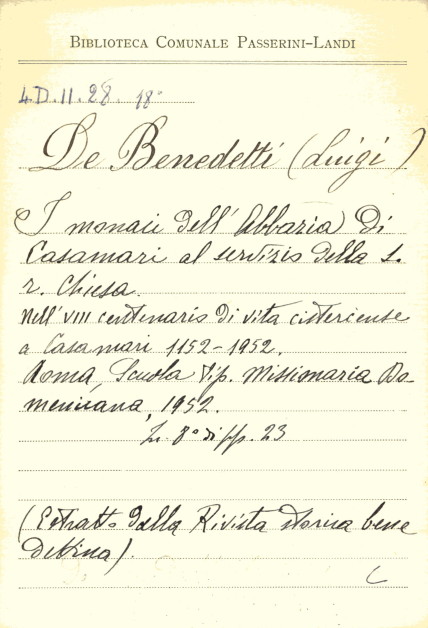 BIBLIOTECA COMUNALE PASSERINI-LANDI
4.D.II.28. 18°
De Benedetti (Luigi)
I monaci dell'Abbazia di
Casamari al servizio della s.
r. Chiesa.
Nell'VIII centenario di vita cisterciense
a Casamari 1152-1952.
Roma, Scuola Tip. Missionaria Do-
menicana, 1952.
In 8° di pp. 23
(Estratto dalla Rivista storica bene
dettina).